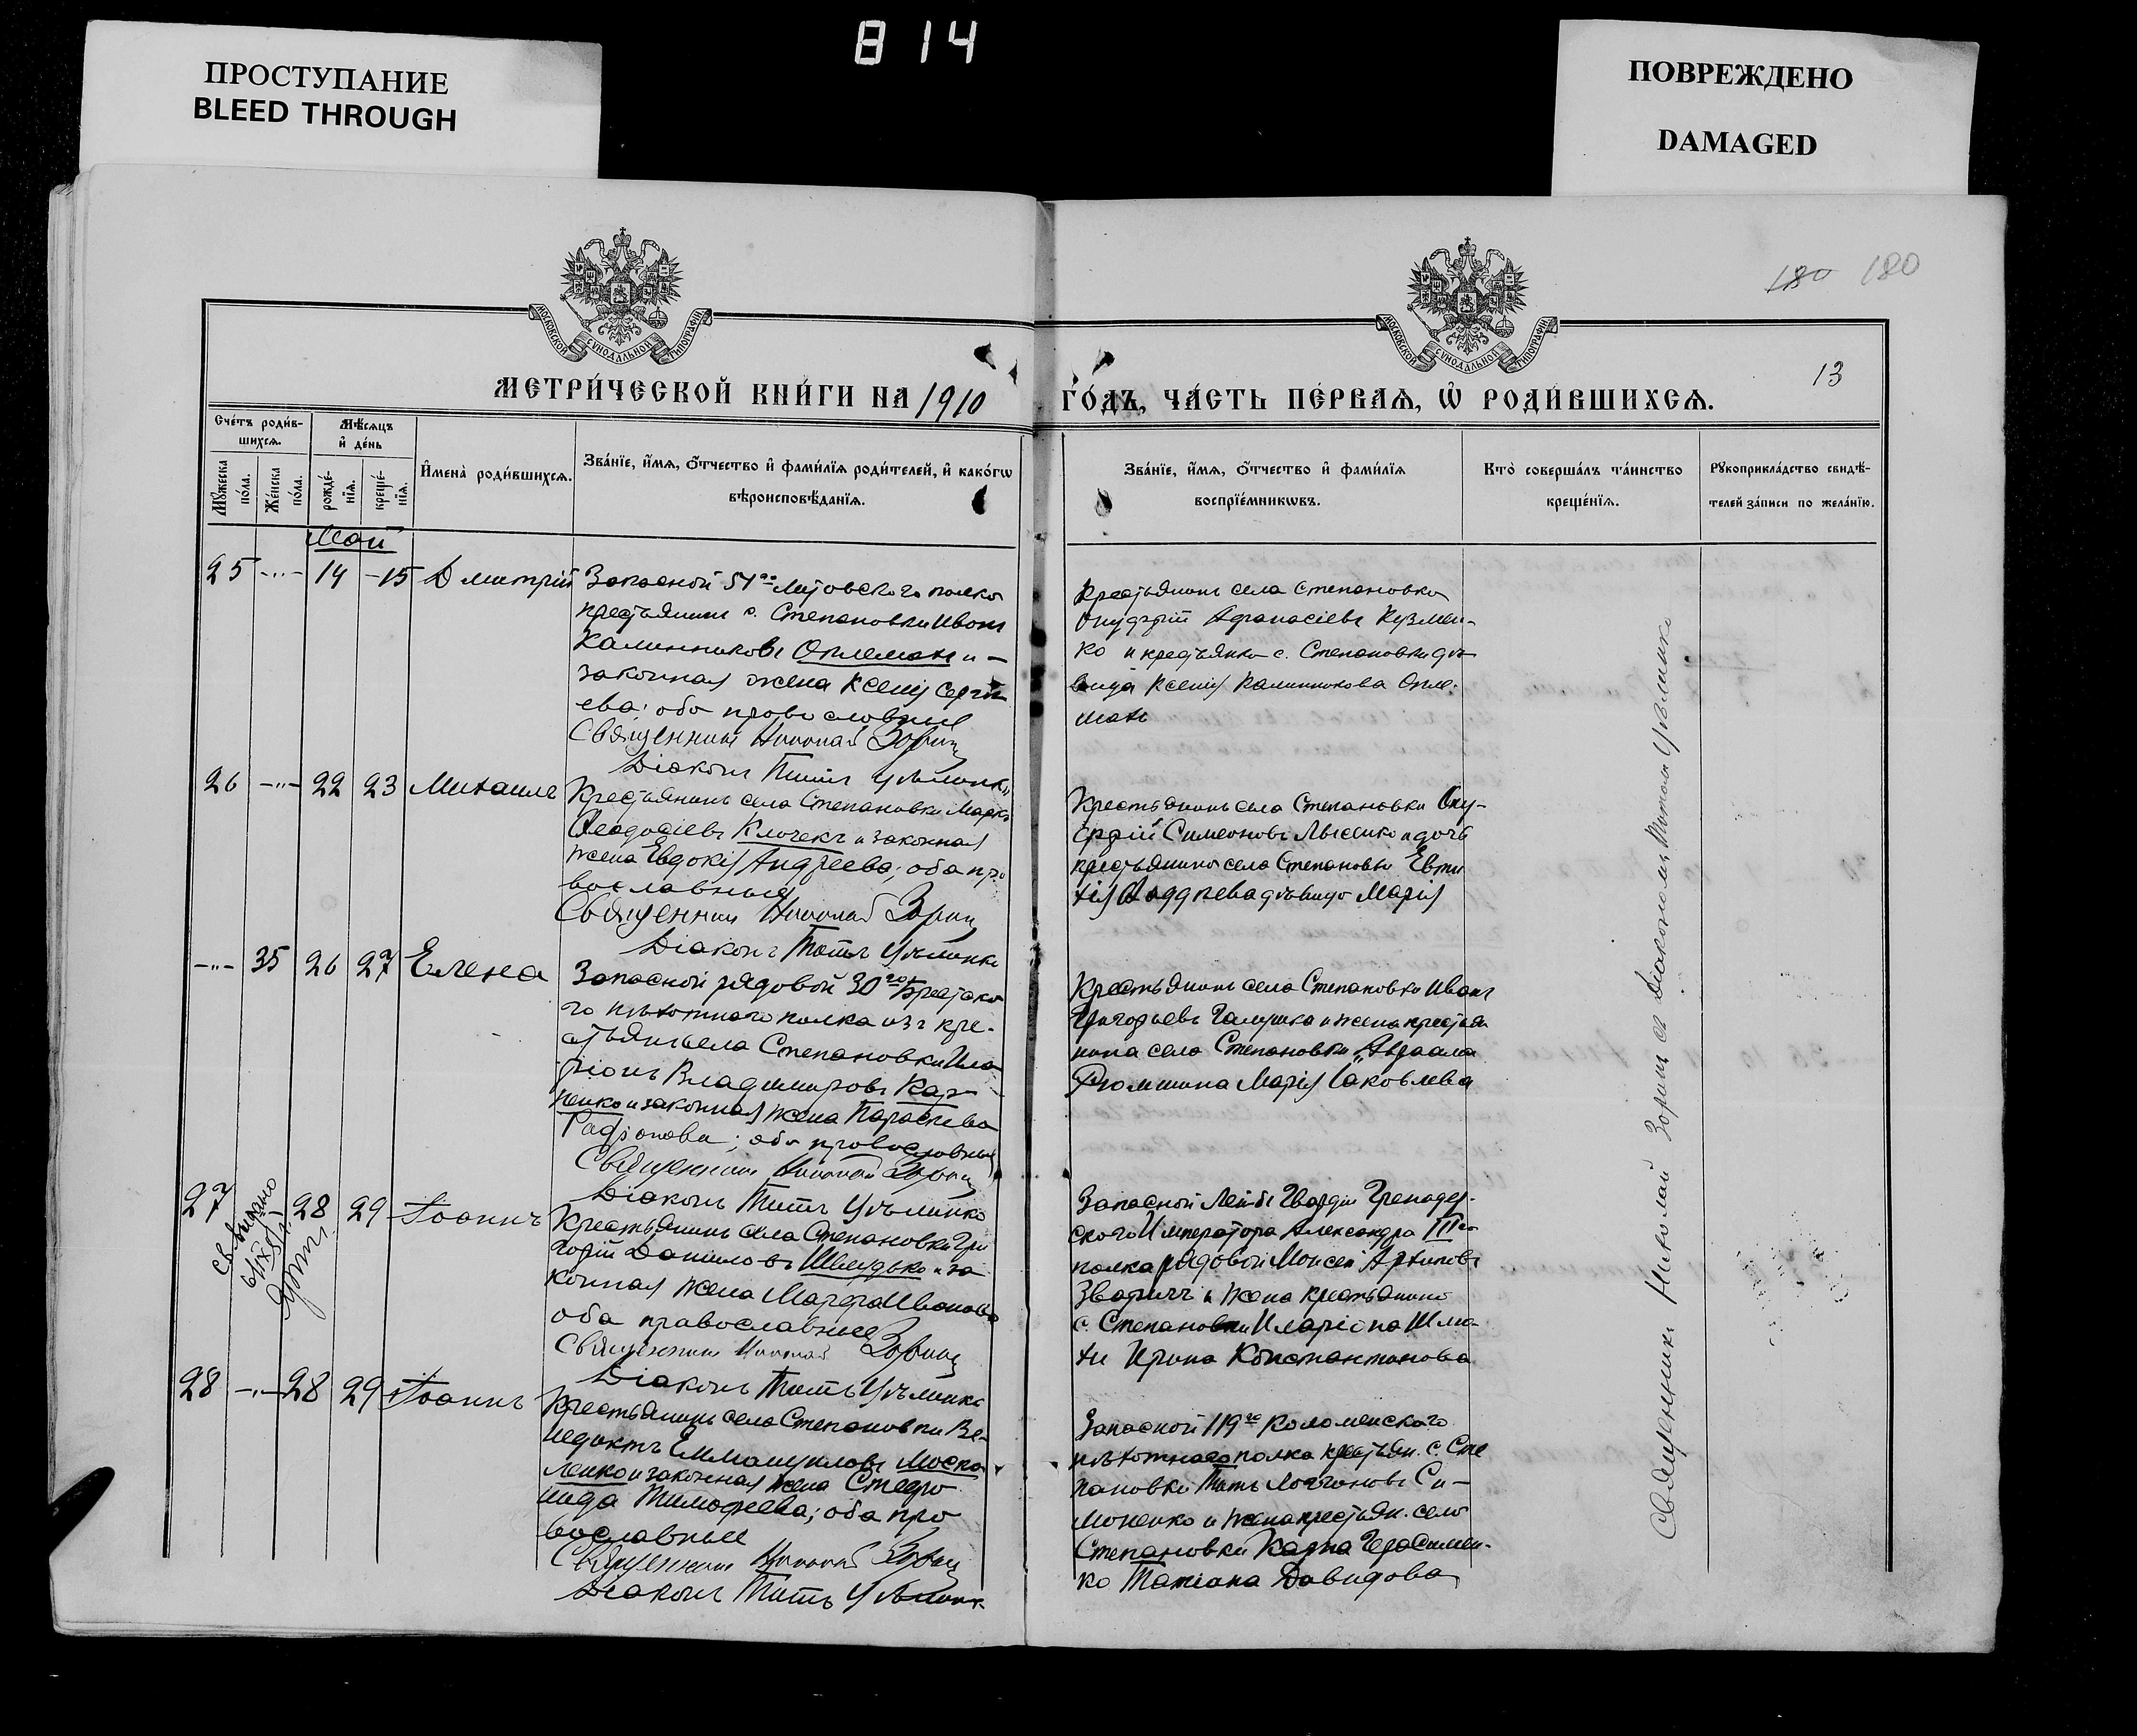 814
ПРОСТУПАНИЕ
BLEED THROUGH
ПОВРЕЖДЕНО
DAMAGED
180 180
13
МОСКОВСКОЙ СѴНОДАЛЬНОЙ ТИПОГРАФІИ
МОСКОВСКОЙ СѴНОДАЛЬНОЙ ТИПОГРАФІИ
МЕТРИ́ЧЕСКОЙ КНИ́ГИ НА 1910
ГО́ДЪ, ЧА́СТЬ ПЕ́РВАѦ, Ѡ҆ РОДИ́ВШИХСѦ.
Сче́тъ роди́в-
шихсѧ.
Мꙋ́жеска по́ла.
Же́нска по́ла.
Мѣ́сѧцъ
и҆ де́нь
рожде́-
нїѧ.
креще́-
нїѧ.
И҆мена̀ роди́вшихсѧ.
Зва́нїе, и҆́мѧ, ѻ҆́тчество и҆ фами́лїѧ роди́телей, и҆ како́гѡ
вѣроисповѣ́данїѧ.
Зва́нїе, и҆́мѧ, ѻ҆́тчество и҆ фами́лїѧ
воспрїе́мникѡвъ.
Кто̀ соверша́лъ та́инство
креще́нїѧ.
Рꙋкоприкла́дство свидѣ́-
телей за́писи по жела́нїю.
Май
25 -"- 14 -15 Дмитрій
Запасной 51го Литовского полка
крестьянин с. Степановки Иванъ
Калинниковъ и -
законная жена Ксенія Сергі-
ева; оба православные
Священникъ Николай Зоринъ
Діаконъ Титъ
Крестьянинъ села Степановки
Онуфрій Афанасіевъ Кузмен-
ко и крестьянка с. Степановки дѣ-
вица Ксенія Калинникова
26 -"- 22 23 Михаилъ
Крестьянинъ села Степановки Марко
Феодосіевъ Клочекъ и законная
жена Евдокія Андреева; оба пра
вославныя
Священникъ Николай Зоринъ
Діаконъ Титъ
Крестьянинъ села Степановки Ону-
фрій Симеоновъ Лысенко и дочь
крестьянина села Степановки
дѣвица Марія
-"- 35 26 27 Елена
Запасной рядовой 30го
го пѣхотнаго полка изъ кре-
стьянъ села Степановки Ила-
ріонъ Владимировъ Кар-
пенко и законная жена Параскева
Радіонова; оба православныя
Священникъ Николай Зоринъ
Діаконъ Титъ
Крестьянинъ села Степановки Иванъ
Григорьевъ Галушка и жена крестьян
нина села Степановки
Марія Іаковлева
27 28 29 Іоаннъ
Крестьянинъ села Степановки Гри
горій Даниловъ Швидько и за
конная жена Марфа Иванова
оба православные
Священникъ Николай Зоринъ
Діаконъ Титъ
Запасной Лейбъ Гвардіи Гренадер-
ского Императора Александра IIIго
полка рядовой Моисей Архиповъ
Зваричъ и жена крестьянина
с. Степановки Иларіона
Ирина Константинова
28 -"- 28 29 Іоаннъ
Крестьянинъ села Степановки Ве-
недиктъ Еммануиловъ Моска-
ленко и законная жена Стефа
нида Тимофеева; оба пра
вославные
Священникъ Николай Зоринъ
Діаконъ Титъ
Запасной 119го Коломенского
пѣхотнаго полка крестьян. с. Сте
пановки Титъ Логгиновъ Си-
моненко и жена крестьян. села
Степановки Карпа Герасимен-
ко Татіана Давидова
Священникъ Николай Зоринъ съ Діакономъ Титомъ